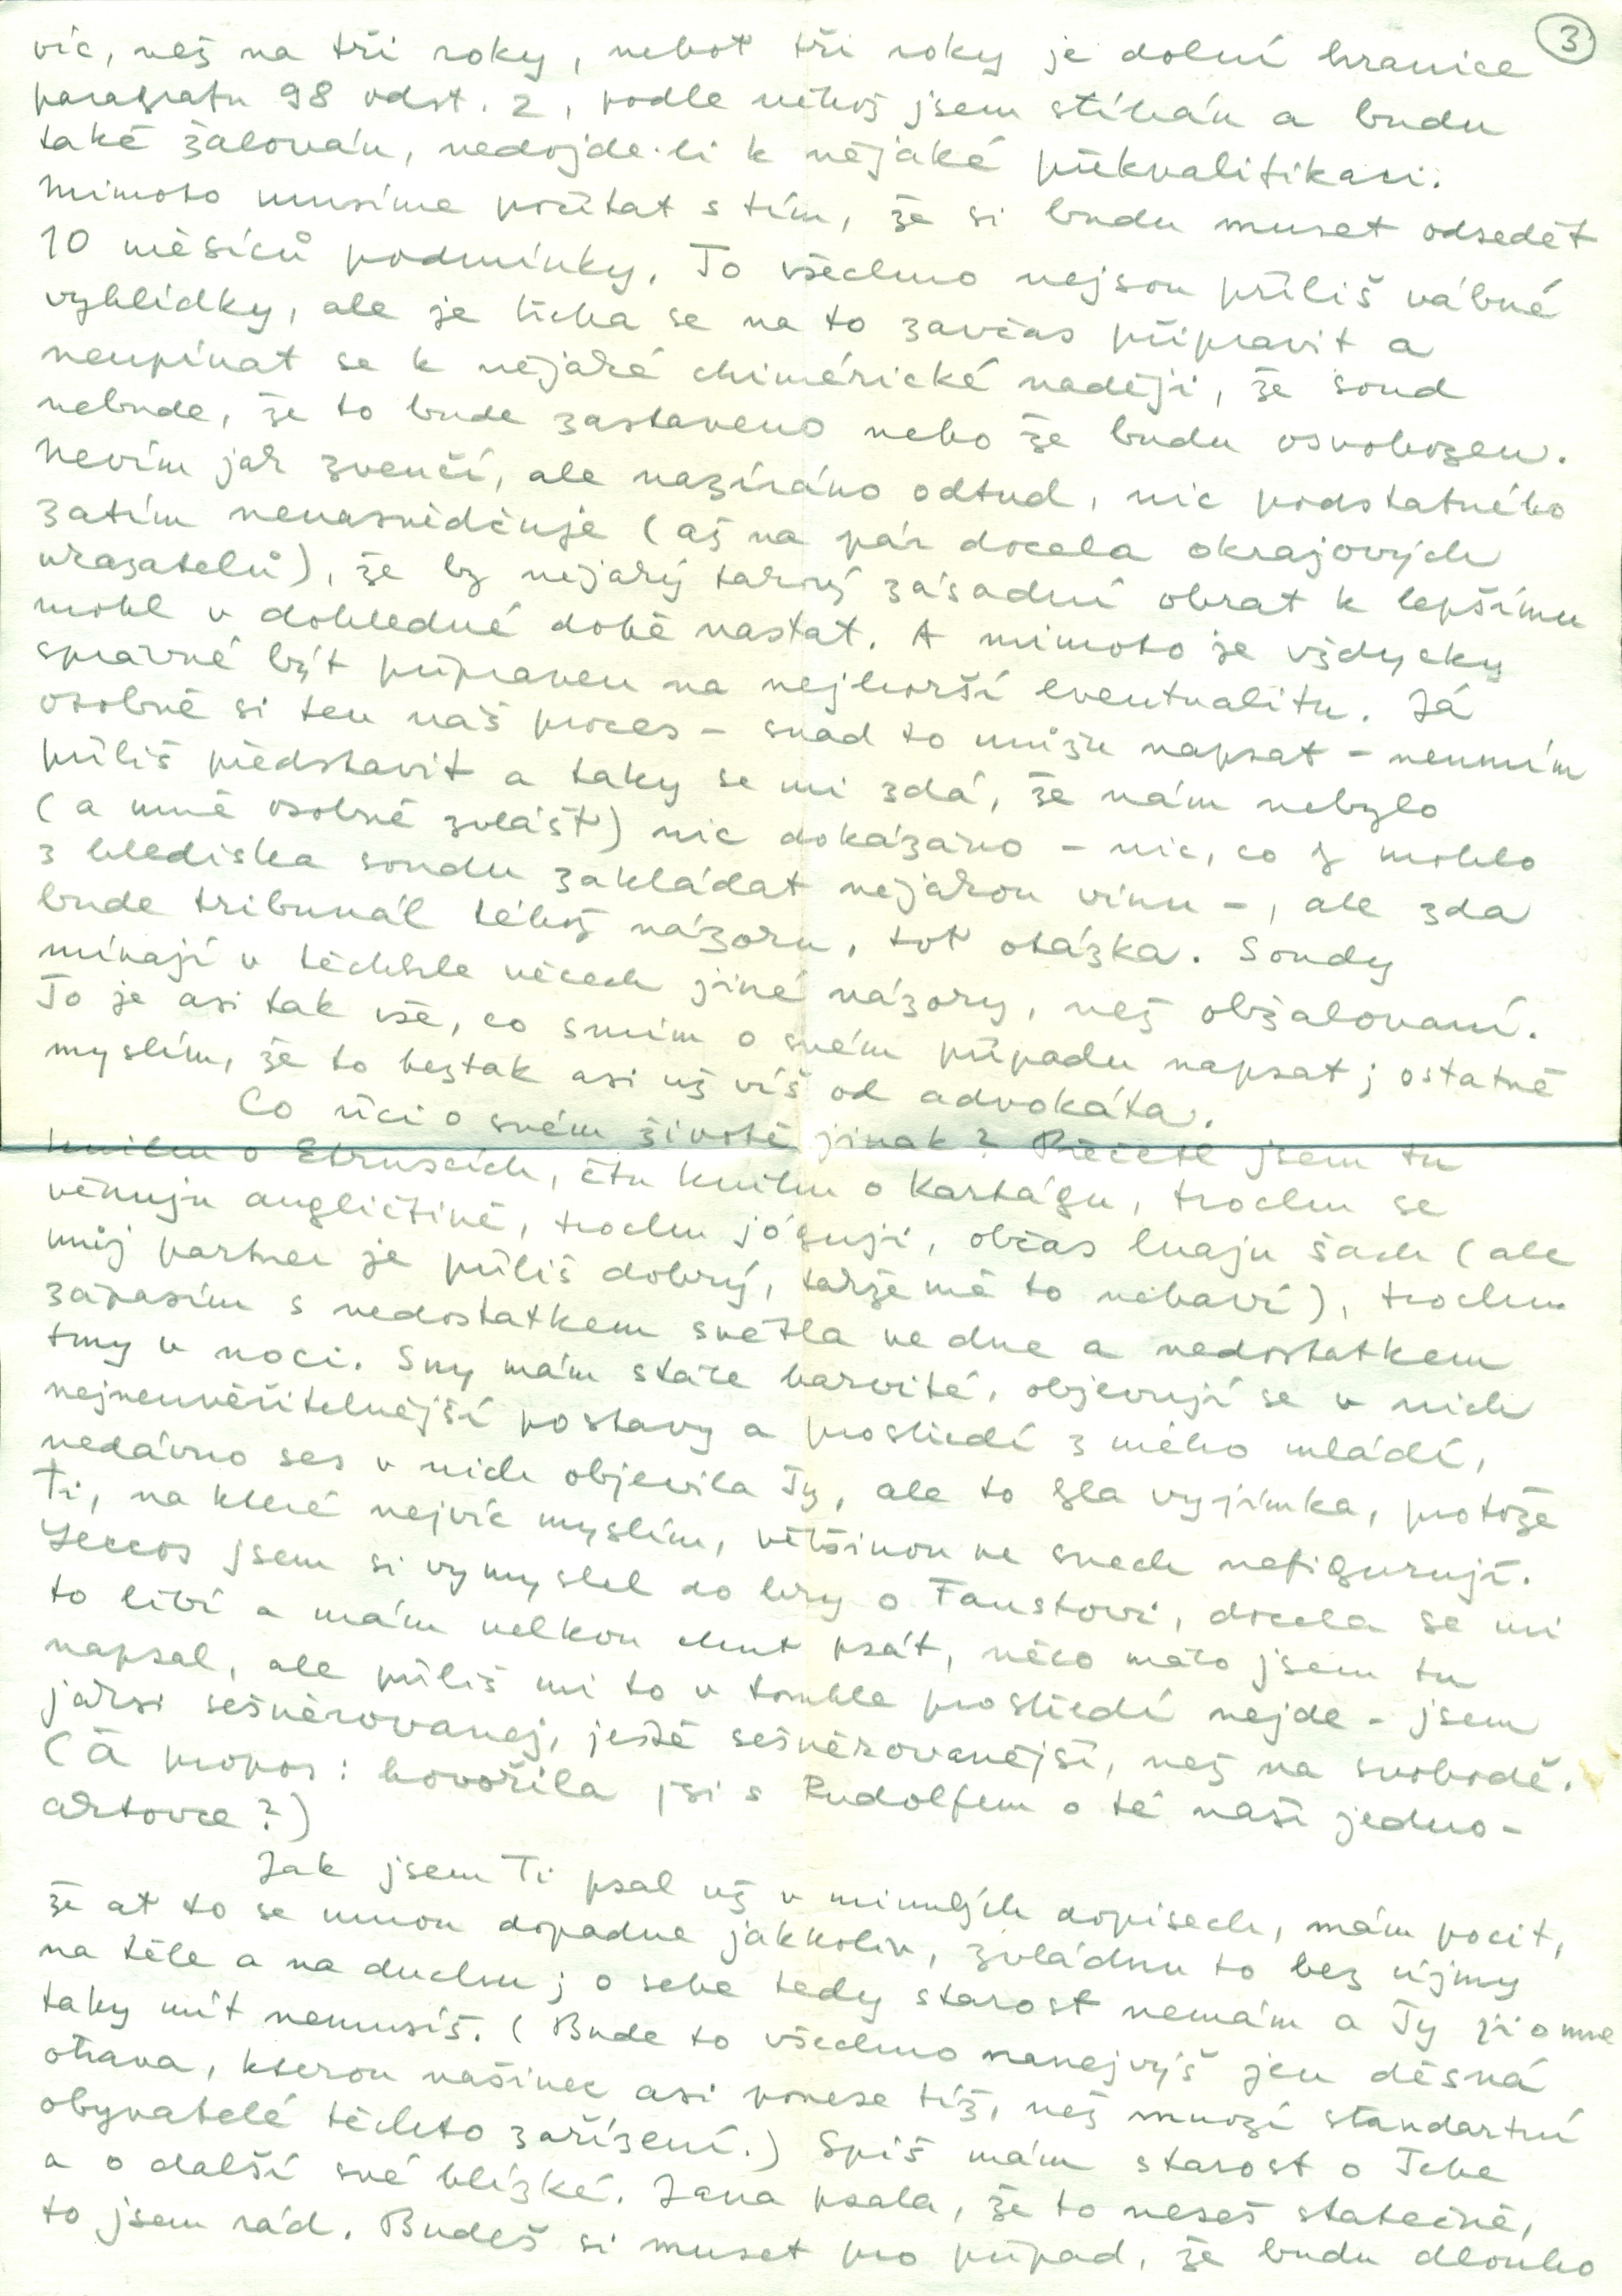 3
víc, než na tři roky, neboť tři roky je dolní hranice
paragrafu 98 odst. 2, podle něhož jsem stíhán a budu
také žalován, nedojde-li k nějaké překvalifikaci.
Mimoto musíme počítat s tím, že si budu muset odsedět
10 měsíců podmínky. To všechno nejsou příliš vábné
vyhlídky, ale je třeba se na to zavčas připravit a
neupínat se k nějaké chimérické naději, že soud
nebude, že to bude zastaveno nebo že budu osvobozen.
Nevím jak zvenčí, ale nazíráno odtud, nic podstatného
zatím nenasvědčuje (až na pár docela okrajových
ukazatelů), že by nějaký takový zásadní obrat k lepšímu
mohl v dohledné době nastat. A mimoto je vždycky
správné být připraven na nejhorší eventualitu. Já
osobně si ten náš proces - snad to můžu napsat - neumím
příliš představit a taky se mi zdá, že nám nebylo
(a mně osobně zvlášť) nic dokázáno - nic, co by mohlo
z hlediska soudu zakládat nějakou vinu -, ale zda
bude tribunál téhož názoru, toť otázka. Soudy
mívají v těchhle věcech jiné názory, než obžalovaní.
To je asi tak vše, co smím o svém případu napsat; ostatně
myslím, že to beztak asi už víš od advokáta.
Co říci o svém životě jinak? Přečetl jsem tu
knihu o Etruscích, čtu knihu o Kartágu, trochu se
věnuju angličtině, trochu jóguji, občas hraju šach (ale
můj partner je příliš dobrý, takže mě to nebaví), trochu
zápasím s nedostatkem světla ve dne a nedostatkem
tmy v noci. Sny mám stále barvité, objevují se v nich
nejneuvěřitelnější postavy a prostředí z mého mládí,
nedávno ses v nich objevila Ty, ale to byla vyjímka, protože
Ti, na které nejvíc myslím, většinou ve snech nefigurují.
Leccos jsem si vymyslel do hry o Faustovi, docela se mi
to líbí a mám velkou chuť psát, něco málo jsem tu
napsal, ale příliš mi to v tomhle prostředí nejde - jsem
jaksi sešněrovanej, ještě sešněrovanější, než na svobodě.
(À propos: hovořila jsi s Rudolfem o té naší jedno-
aktovce?)
Jak jsem Ti psal už v minulých dopisech, mám pocit,
že ať to se mnou dopadne jakkoliv, zvládnu to bez újmy
na těle a na duchu; o sebe tedy starost nemám a Ty ji o mne
taky mít nemusíš. (Bude to všechno nanejvýš jen děsná
otrava, kterou našinec asi ponese tíž, než mnozí standartní
obyvatelé těchto zařízení.) Spíš mám starost o Tebe
a o další své blízké. Jana psala, že to neseš statečně,
to jsem rád. Budeš si muset pro případ, že budu dlouho